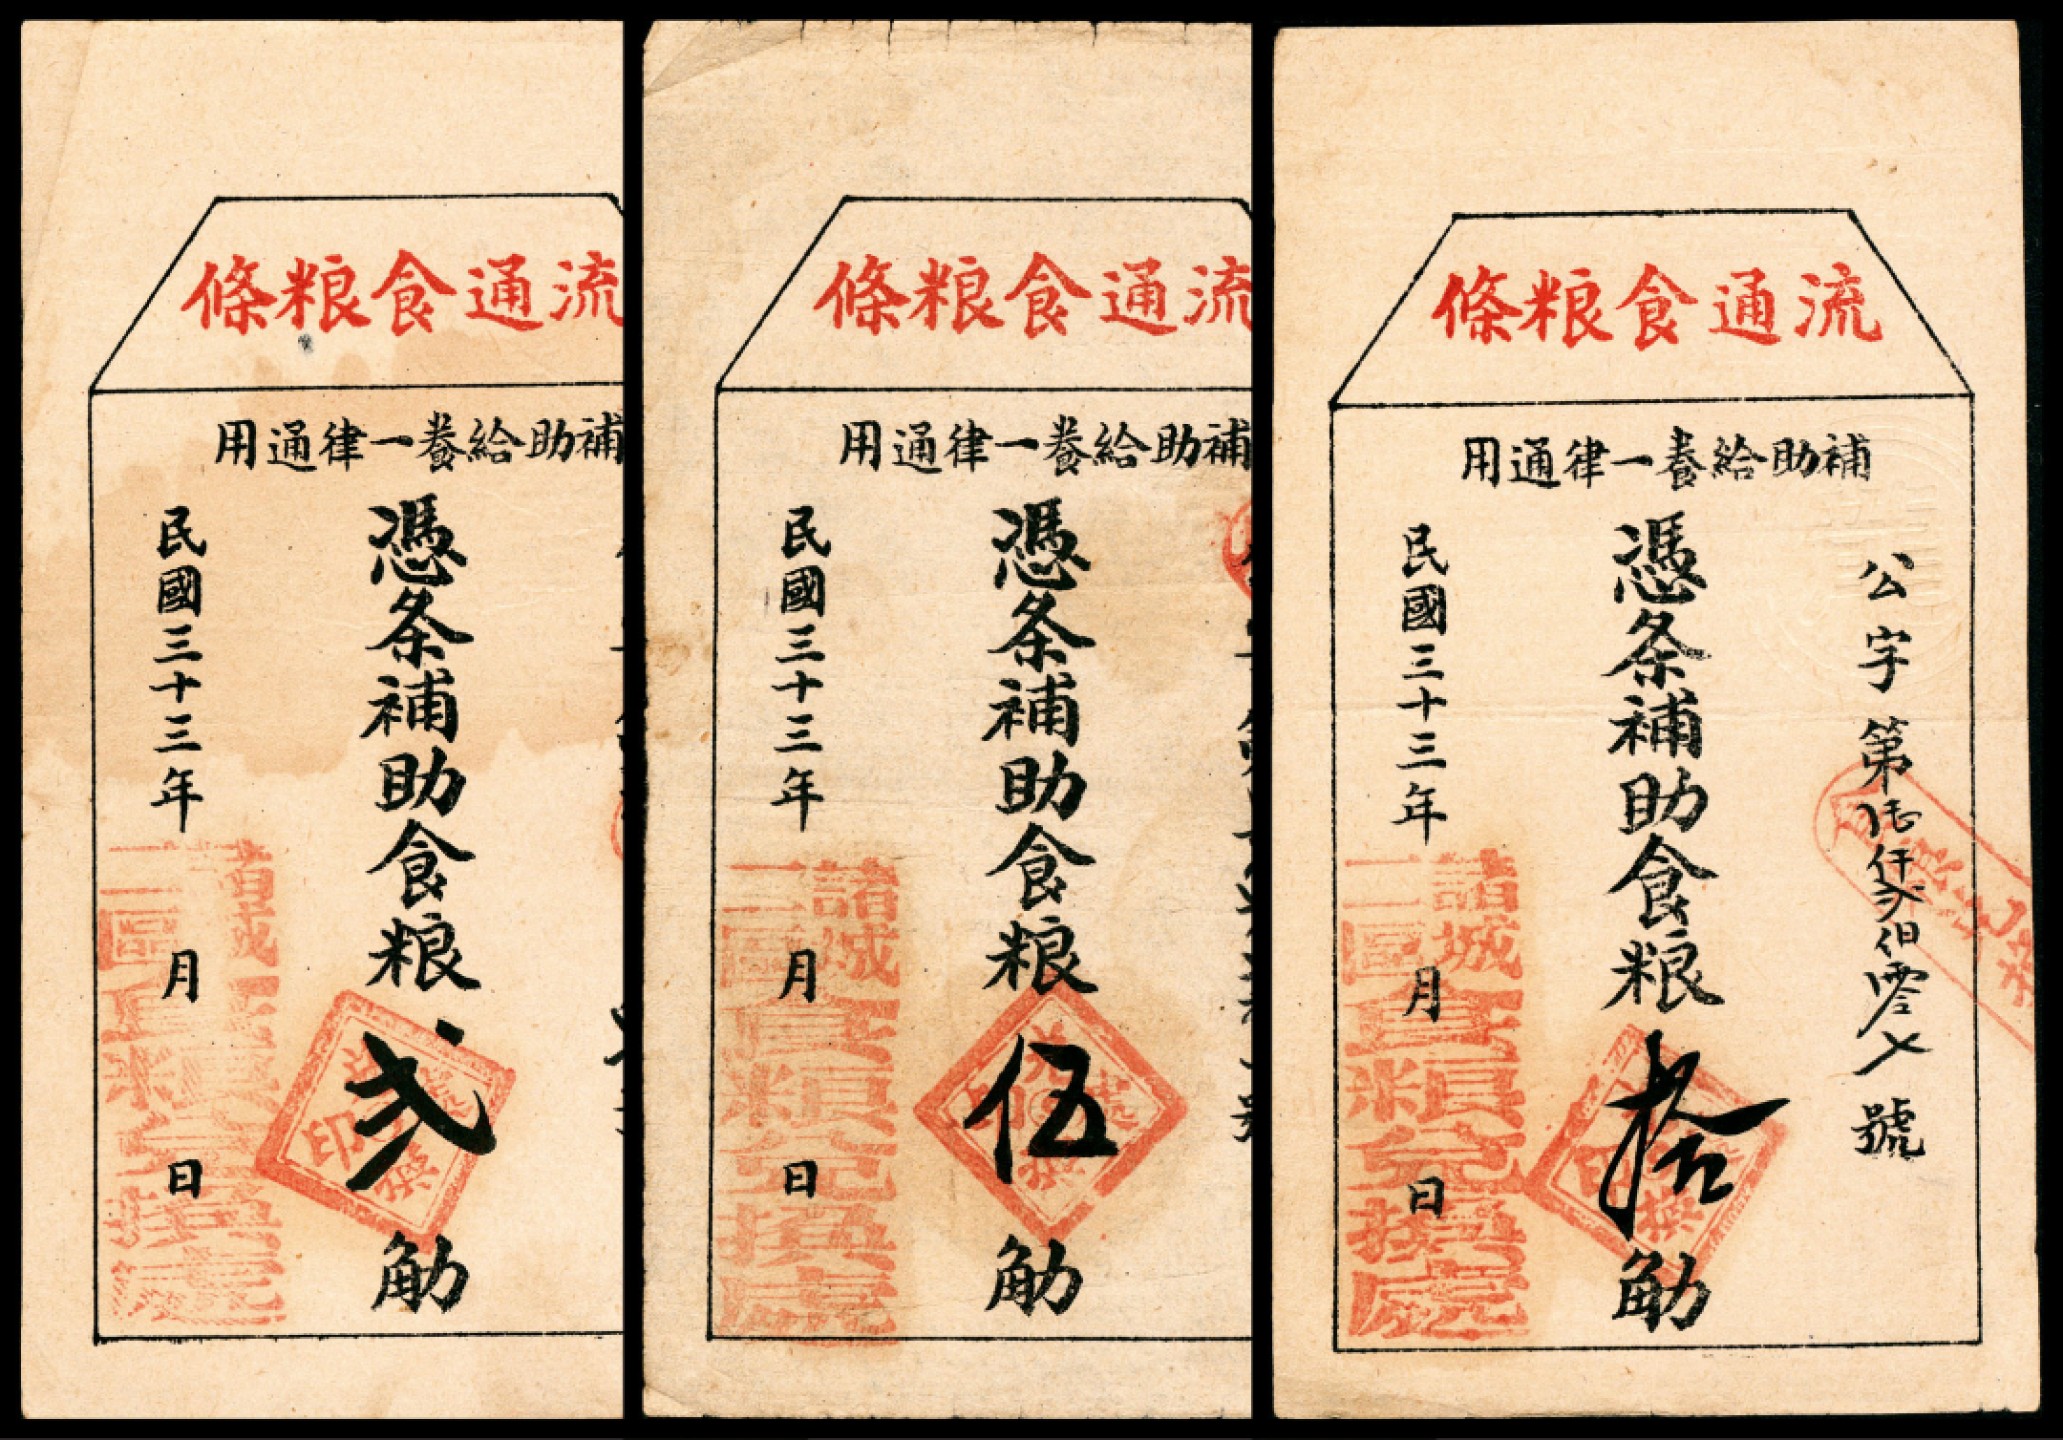 流通食粮條
補助給養一律通用
憑条補助食粮弍觔
民國三十三年 月 日
諸城
二區食粮兌換處
印
流通食粮條
補助給養一律通用
憑条補助食粮伍觔
民國三十三年 月 日
諸城
二區食粮兌換處
流通食粮條
補助給養一律通用
公字第伍仟弍佰零七號
憑条補助食粮拾觔
民國三十三年 月 日
諸城
二區食粮兌換處
印